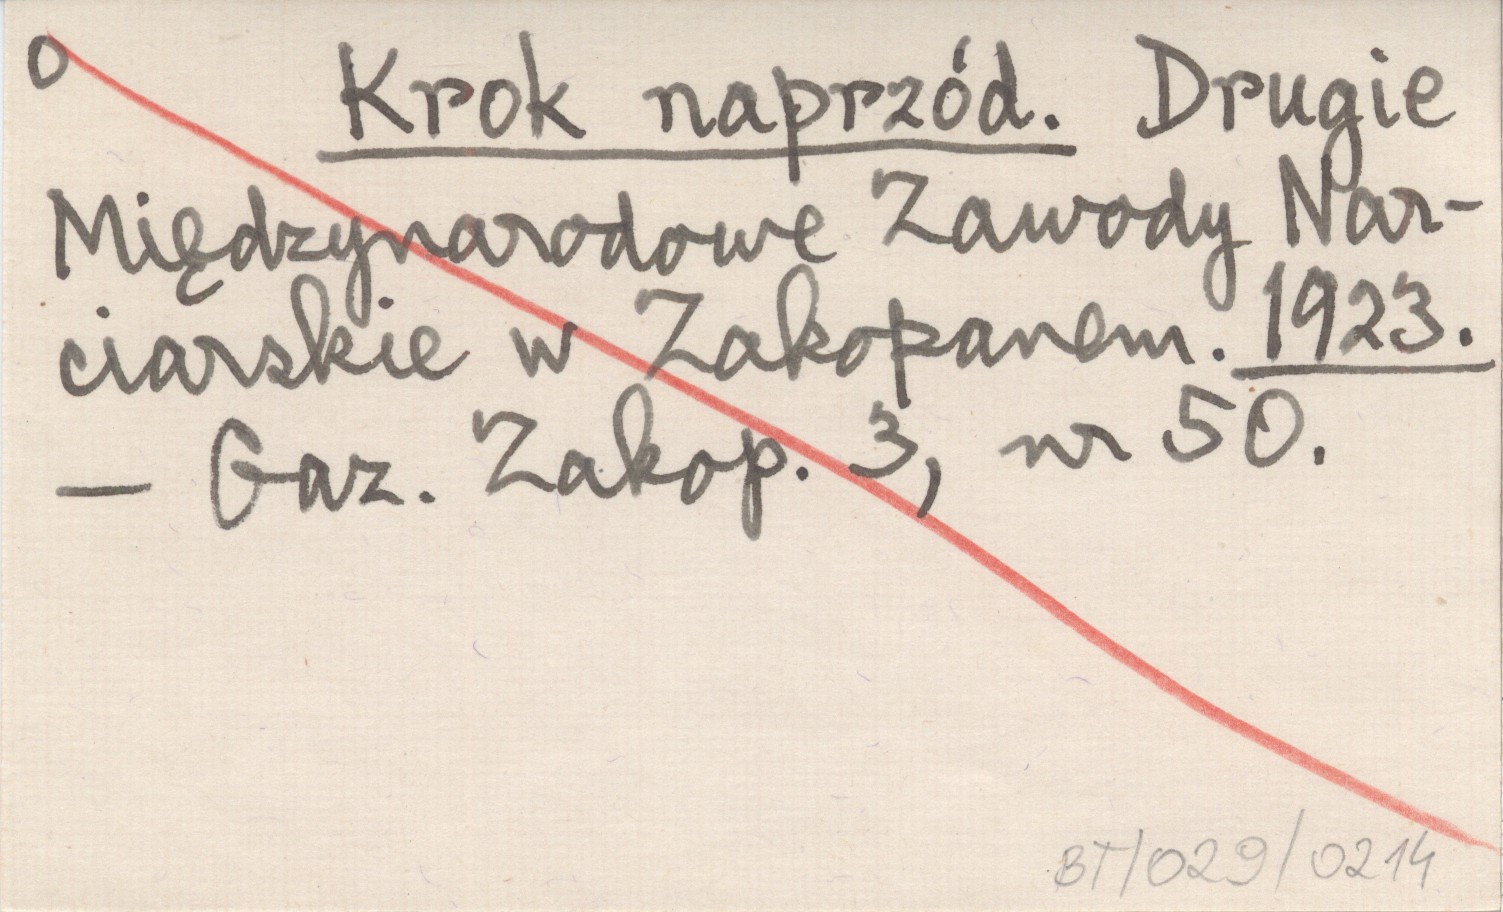 o Krok naprzód. Drugie
Międzynarodowe Zawody Nar-
ciarskie w Zakopanem. 1923.
— Gaz. Zakop. 3, nr 50.
BT/029/0214